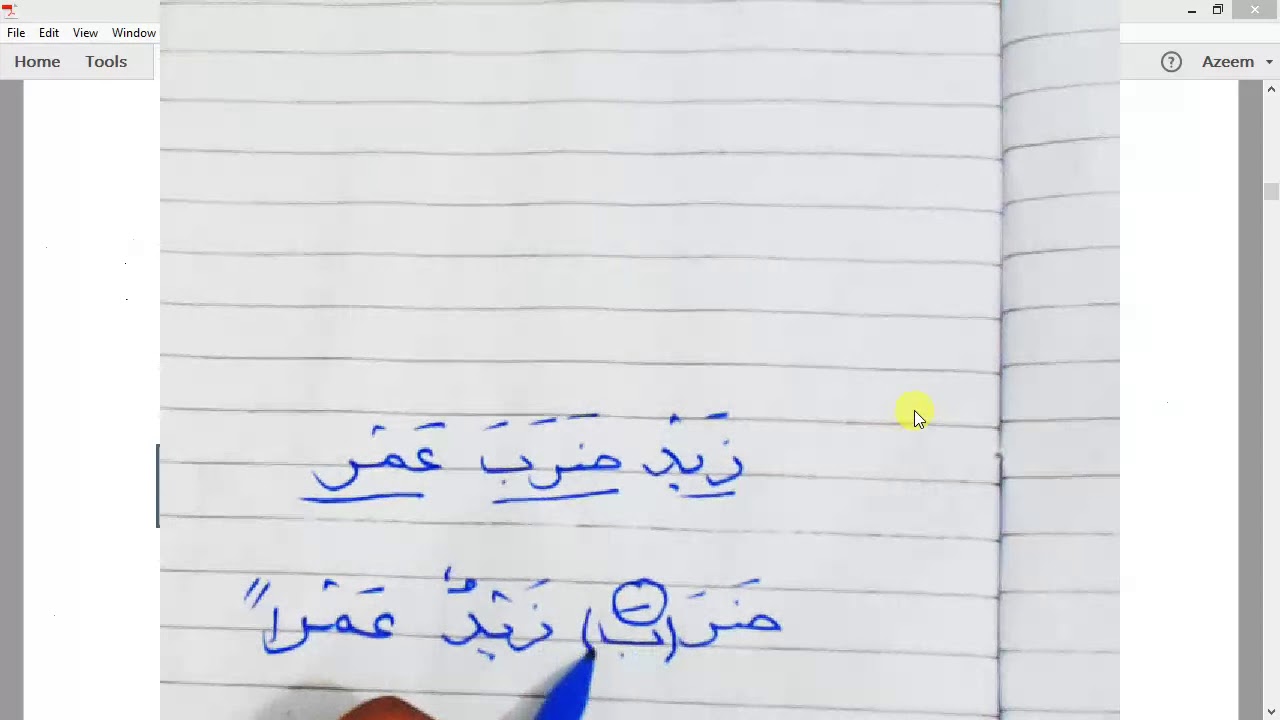 File Edit View Window
Home Tools
Azeem
زَيْدْ ضَرَبَ عَمْر
ضَرَ(بَ) زَيْدٌ عَمْراً